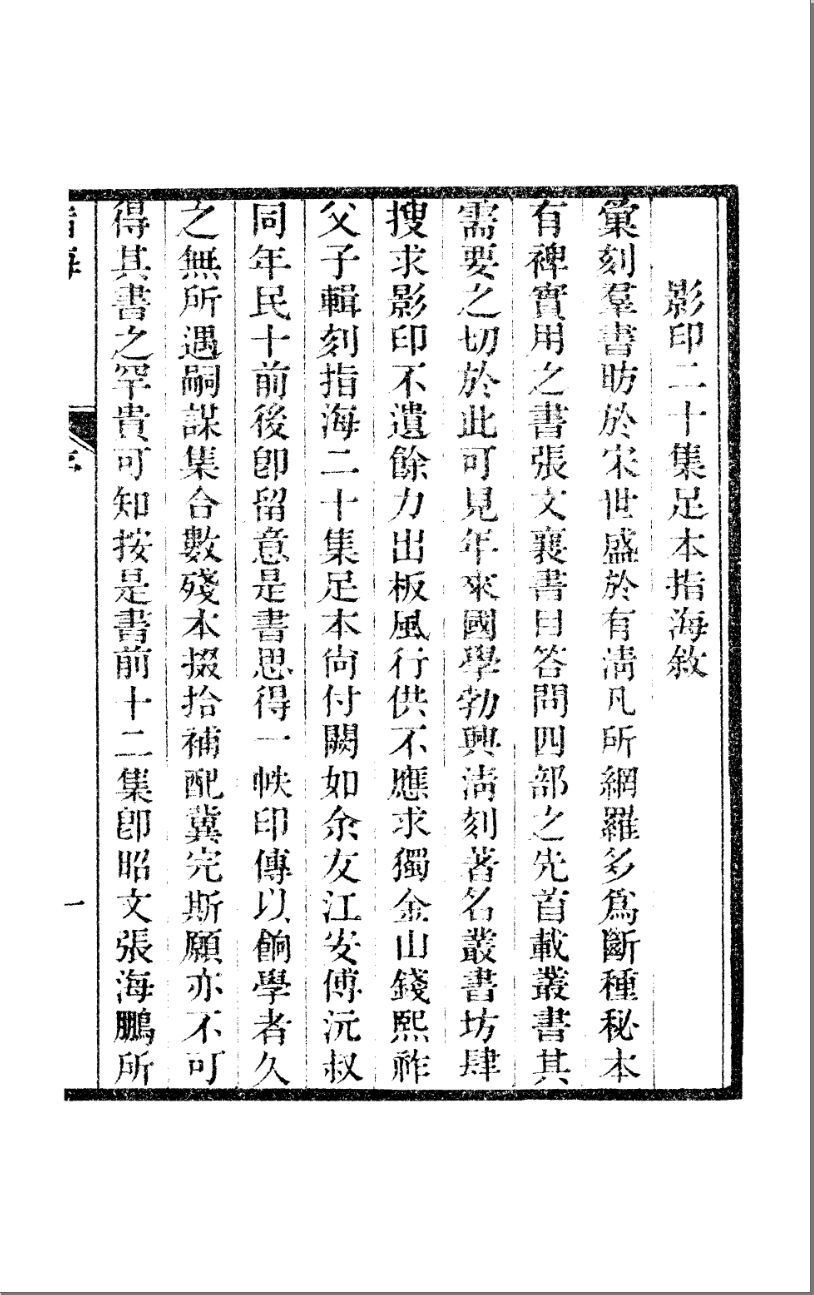 影印二十集足本指海敘
彙刻羣書昉於宋世盛於有淸凡所網羅多爲斷種秘本
有裨實用之書張文襄書目答問四部之先首載叢書其
需要之切於此可見年來國學勃興淸刻著名叢書坊肆
搜求影印不遺餘力出板風行供不應求獨金山錢熙祚
父子輯刻指海二十集足本尙付闕如余友江安傅沅叔
同年民十前後卽留意是書思得一帙印傳以餉學者久
之無所遇嗣謀集合數殘本掇拾補配冀完斯願亦不可
得其書之罕貴可知按是書前十二集卽昭文張海鵬所
一